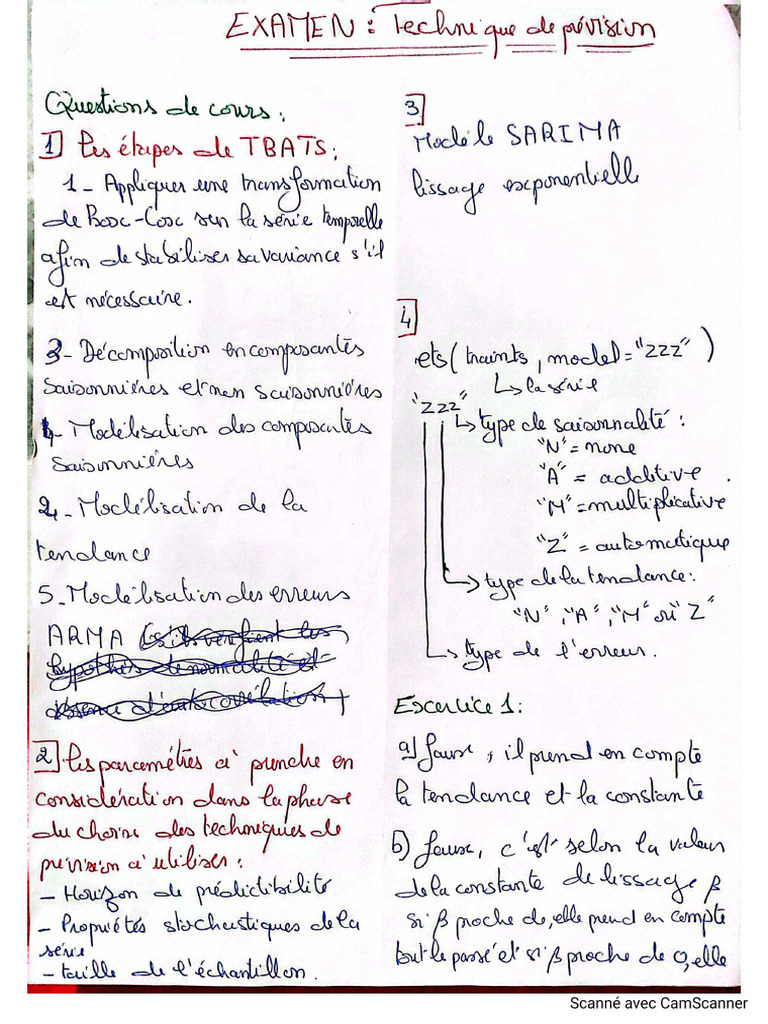 EXAMEN : Technique de prévision
Questions de cours :
1 Les étapes de TBATS :
1 - Appliquer une transformation
de Box-Cox sur la série temporelle
afin de stabiliser sa variance s'il
est nécessaire.
3 - Décomposition en composantes
saisonnières et non saisonnières
4 - Modélisation des composantes
saisonnières
2 - Modélisation de la
tendance
5 - Modélisation des erreurs
ARMA (s'ils vérifient les
hypothèses de normalité et
absence d'autocorrélation)
2 Les paramètres à prendre en
considération dans la phase
du choix des techniques de
prévision à utiliser :
- Horizon de prédictibilité
- Propriétés stochastiques de la
série
- taille de l'échantillon.
3
Modèle SARIMA
lissage exponentielle
4
ets( traints, model = "ZZZ" )
la série
"ZZZ"
type de saisonnalité :
"N" = none
"A" = additive.
"M" = multiplicative
"Z" = automatique
type de la tendance :
"N", "A", "M" ou "Z"
type de l'erreur.
Exercice 1 :
a) faux, il prend en compte
la tendance et la constante
b) faux, c'est selon la valeur
de la constante de lissage β
si β proche de, elle prend en compte
tout le passé et si β proche de 0, elle
Scanné avec CamScanner